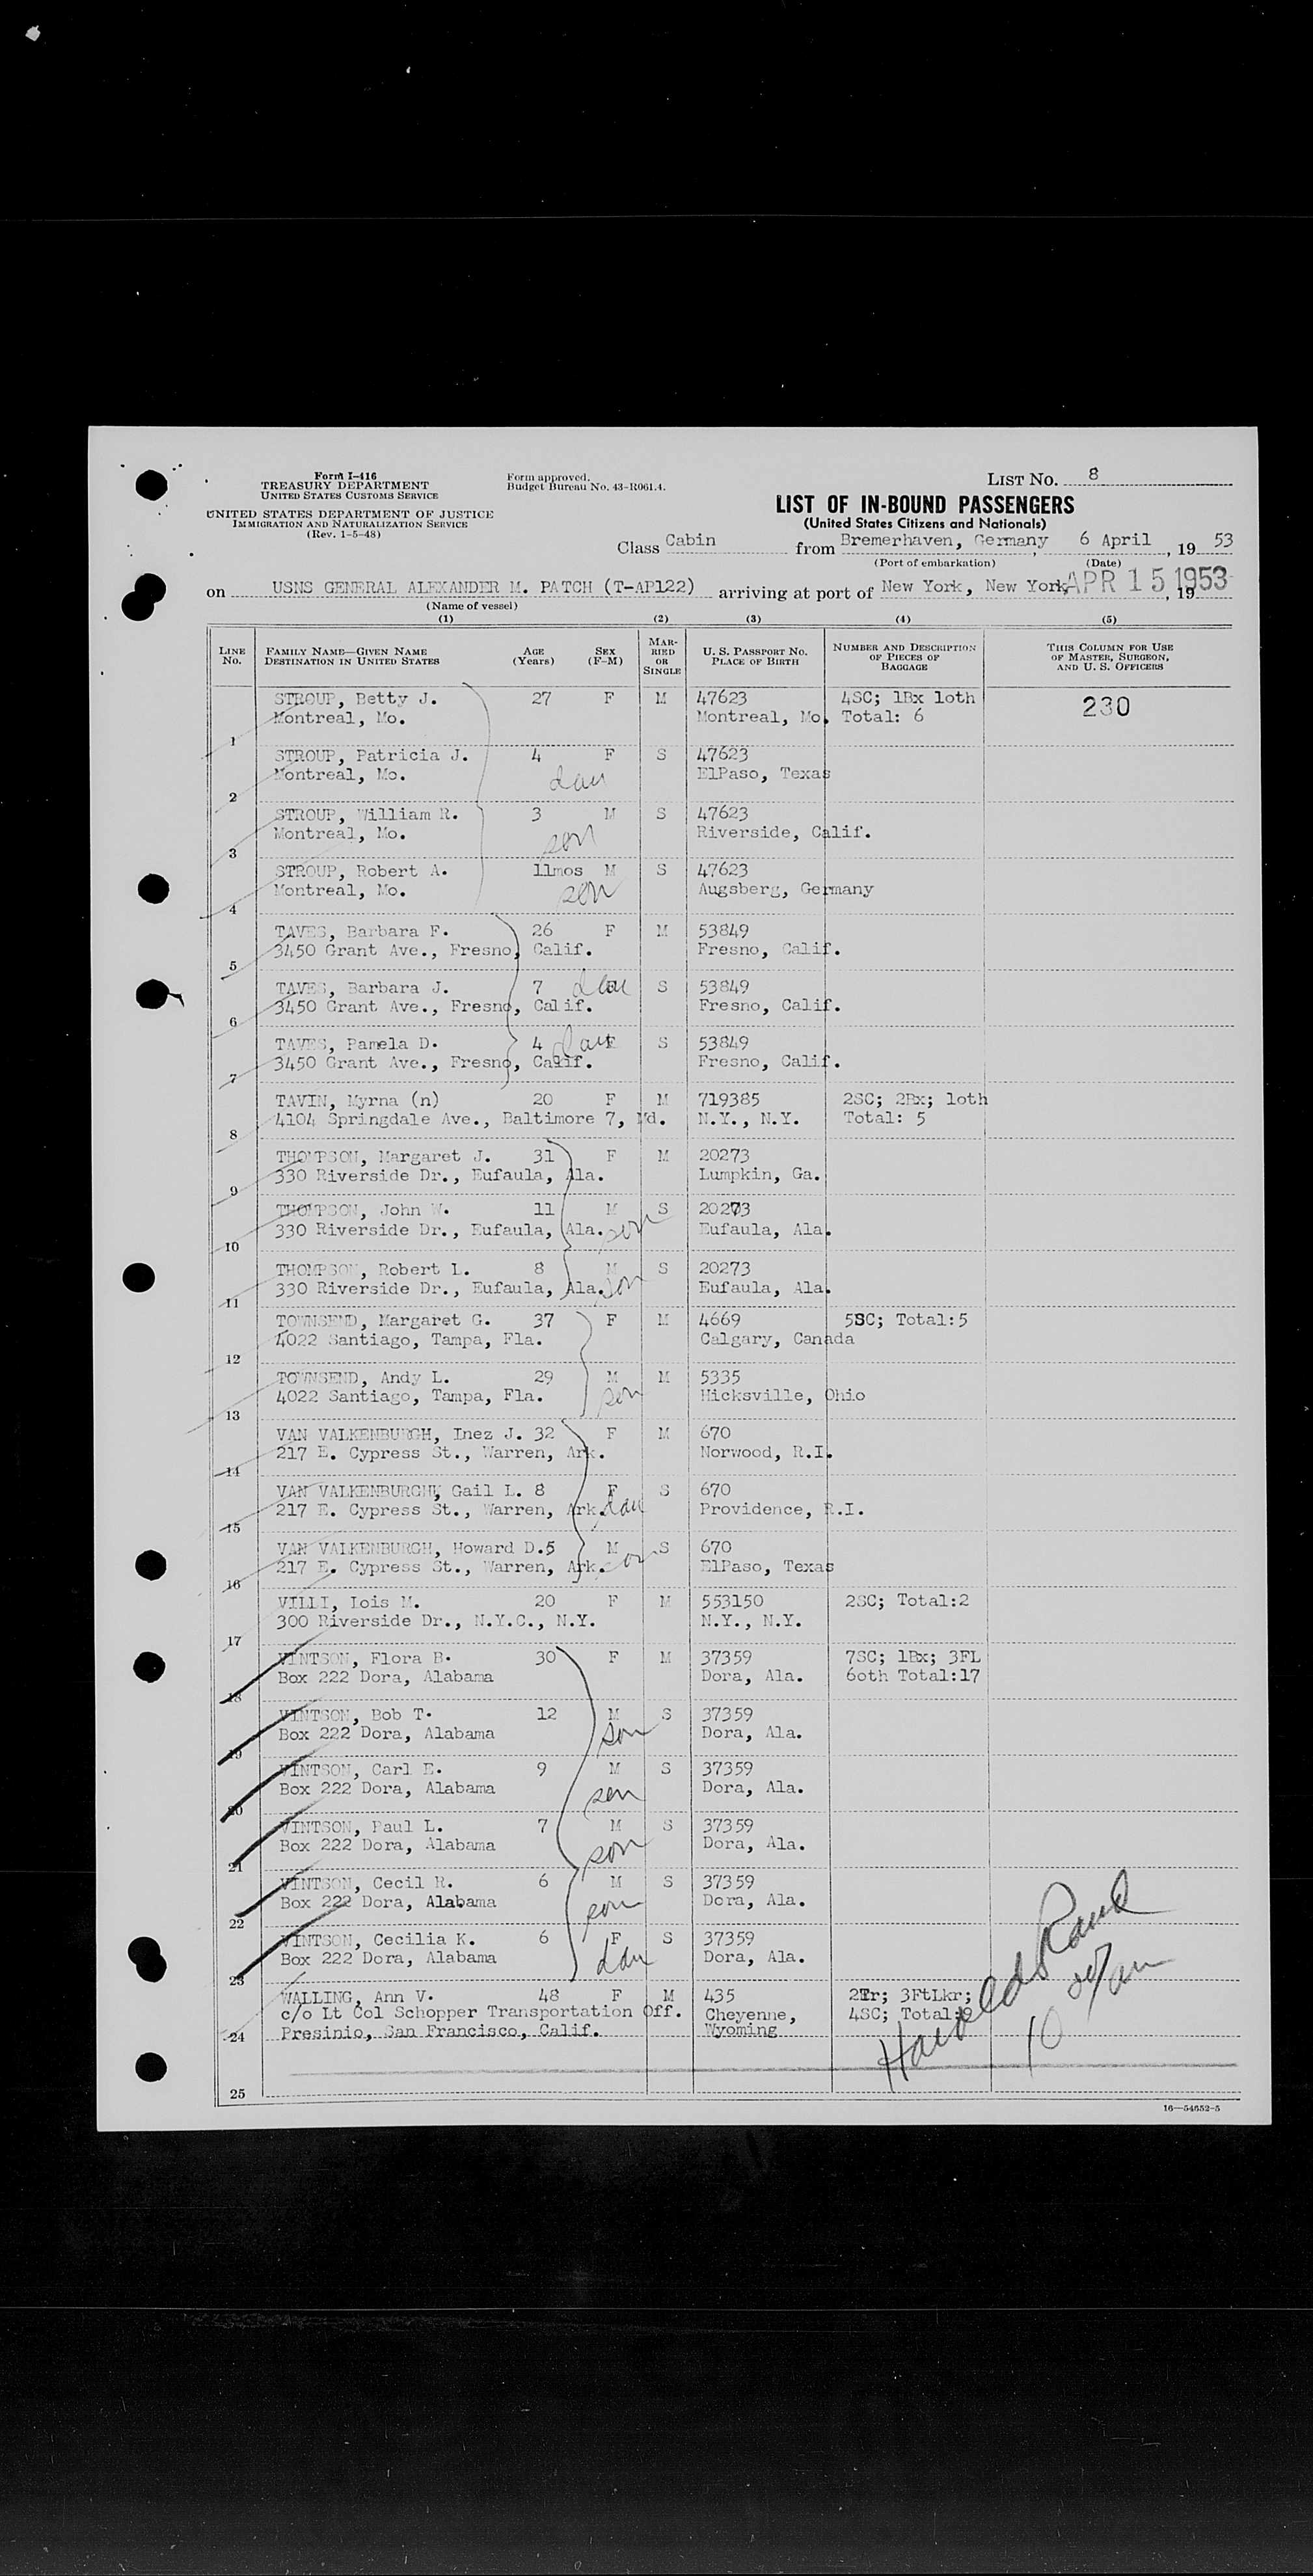 Form I-416
TREASURY DEPARTMENT
UNITED STATES CUSTOMS SERVICE
UNITED STATES DEPARTMENT OF JUSTICE
IMMIGRATION AND NATURALIZATION SERVICE
(Rev. 1-5-48)
Form approved.
Budget Bureau No. 43-R061.4.
LIST NO. 8
LIST OF IN-BOUND PASSENGERS
(United States Citizens and Nationals)
Class Cabin from Bremerhaven, Germany, 6 April, 19 53
(Port of embarkation) (Date)
on USNS GENERAL ALEXANDER M. PATCH (T-AP122) arriving at port of New York, New York, APR 15 1953, 19
(Name of vessel)
(1) (2) (3) (4) (5)
LINE NO. FAMILY NAME—GIVEN NAME DESTINATION IN UNITED STATES AGE (Years) SEX (F-M) MARRIED OR SINGLE U. S. PASSPORT NO. PLACE OF BIRTH NUMBER AND DESCRIPTION OF PIECES OF BAGGAGE THIS COLUMN FOR USE OF MASTER, SURGEON, AND U. S. OFFICERS
STROUP, Betty J. 27 F M 47623 4SC; 1Bx 1oth 230
1 Montreal, Mo. Montreal, Mo. Total: 6
STROUP, Patricia J. 4 F S 47623
2 Montreal, Mo. dau ElPaso, Texas
STROUP, William R. 3 M S 47623
3 Montreal, Mo. son Riverside, Calif.
STROUP, Robert A. 11mos M S 47623
4 Montreal, Mo. son Augsberg, Germany
TAVES, Barbara F. 26 F M 53849
5 3450 Grant Ave., Fresno, Calif. Fresno, Calif.
TAVES, Barbara J. 7 dau S 53849
6 3450 Grant Ave., Fresno, Calif. Fresno, Calif.
TAVES, Pamela D. 4 dau F S 53849
7 3450 Grant Ave., Fresno, Calif. Fresno, Calif.
TAVIN, Myrna (n) 20 F M 719385 2SC; 2Bx; 1oth
8 4104 Springdale Ave., Baltimore 7, Md. N.Y., N.Y. Total: 5
THOMPSON, Margaret J. 31 F M 20273
9 330 Riverside Dr., Eufaula, Ala. Lumpkin, Ga.
THOMPSON, John W. 11 M S 20273
10 330 Riverside Dr., Eufaula, Ala. son Eufaula, Ala.
THOMPSON, Robert L. 8 M S 20273
11 330 Riverside Dr., Eufaula, Ala. son Eufaula, Ala.
TOWNSEND, Margaret G. 37 F M 4669 5SC; Total:5
12 4022 Santiago, Tampa, Fla. Calgary, Canada
TOWNSEND, Andy L. 29 M M 5335
13 4022 Santiago, Tampa, Fla. son Hicksville, Ohio
VAN VALKENBURGH, Inez J. 32 F M 670
14 217 E. Cypress St., Warren, Ark. Norwood, R.I.
VAN VALKENBURGH, Gail L. 8 F S 670
15 217 E. Cypress St., Warren, Ark. dau Providence, R.I.
VAN VALKENBURGH, Howard D.5 M S 670
16 217 E. Cypress St., Warren, Ark. son ElPaso, Texas
VILLI, Lois M. 20 F M 553150 2SC; Total:2
17 300 Riverside Dr., N.Y.C., N.Y. N.Y., N.Y.
VINTSON, Flora B. 30 F M 37359 7SC; 1Bx; 3FL
18 Box 222 Dora, Alabama Dora, Ala. 6oth Total:17
VINTSON, Bob T. 12 M S 37359
19 Box 222 Dora, Alabama son Dora, Ala.
VINTSON, Carl E. 9 M S 37359
20 Box 222 Dora, Alabama son Dora, Ala.
VINTSON, Paul L. 7 M S 37359
21 Box 222 Dora, Alabama son Dora, Ala.
VINTSON, Cecil R. 6 M S 37359
22 Box 222 Dora, Alabama son Dora, Ala.
VINTSON, Cecilia K. 6 F S 37359
23 Box 222 Dora, Alabama dau Dora, Ala.
WALLING, Ann V. 48 F M 435 2Tr; 3FtLkr;
c/o Lt Col Schopper Transportation Off. Cheyenne, 4SC; Total:
24 Presinio, San Francisco, Calif. Wyoming
Harold
10
25
16—54652-5